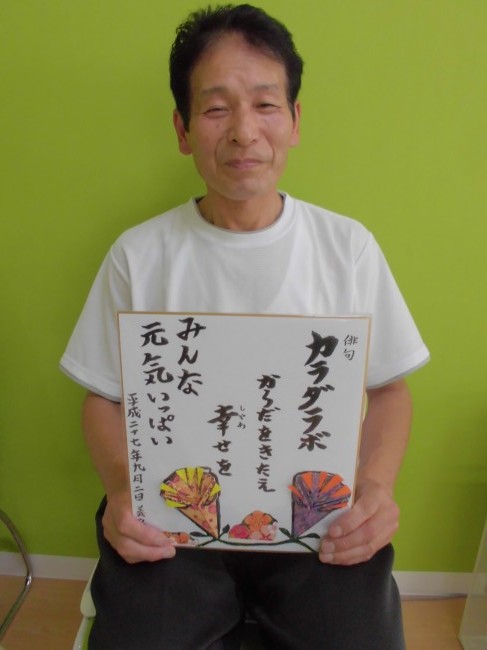 俳句
カラダラボ
からだをきたえ
幸せを
しやわ
みんな
元気いっぱい
平成二十七年九月二日